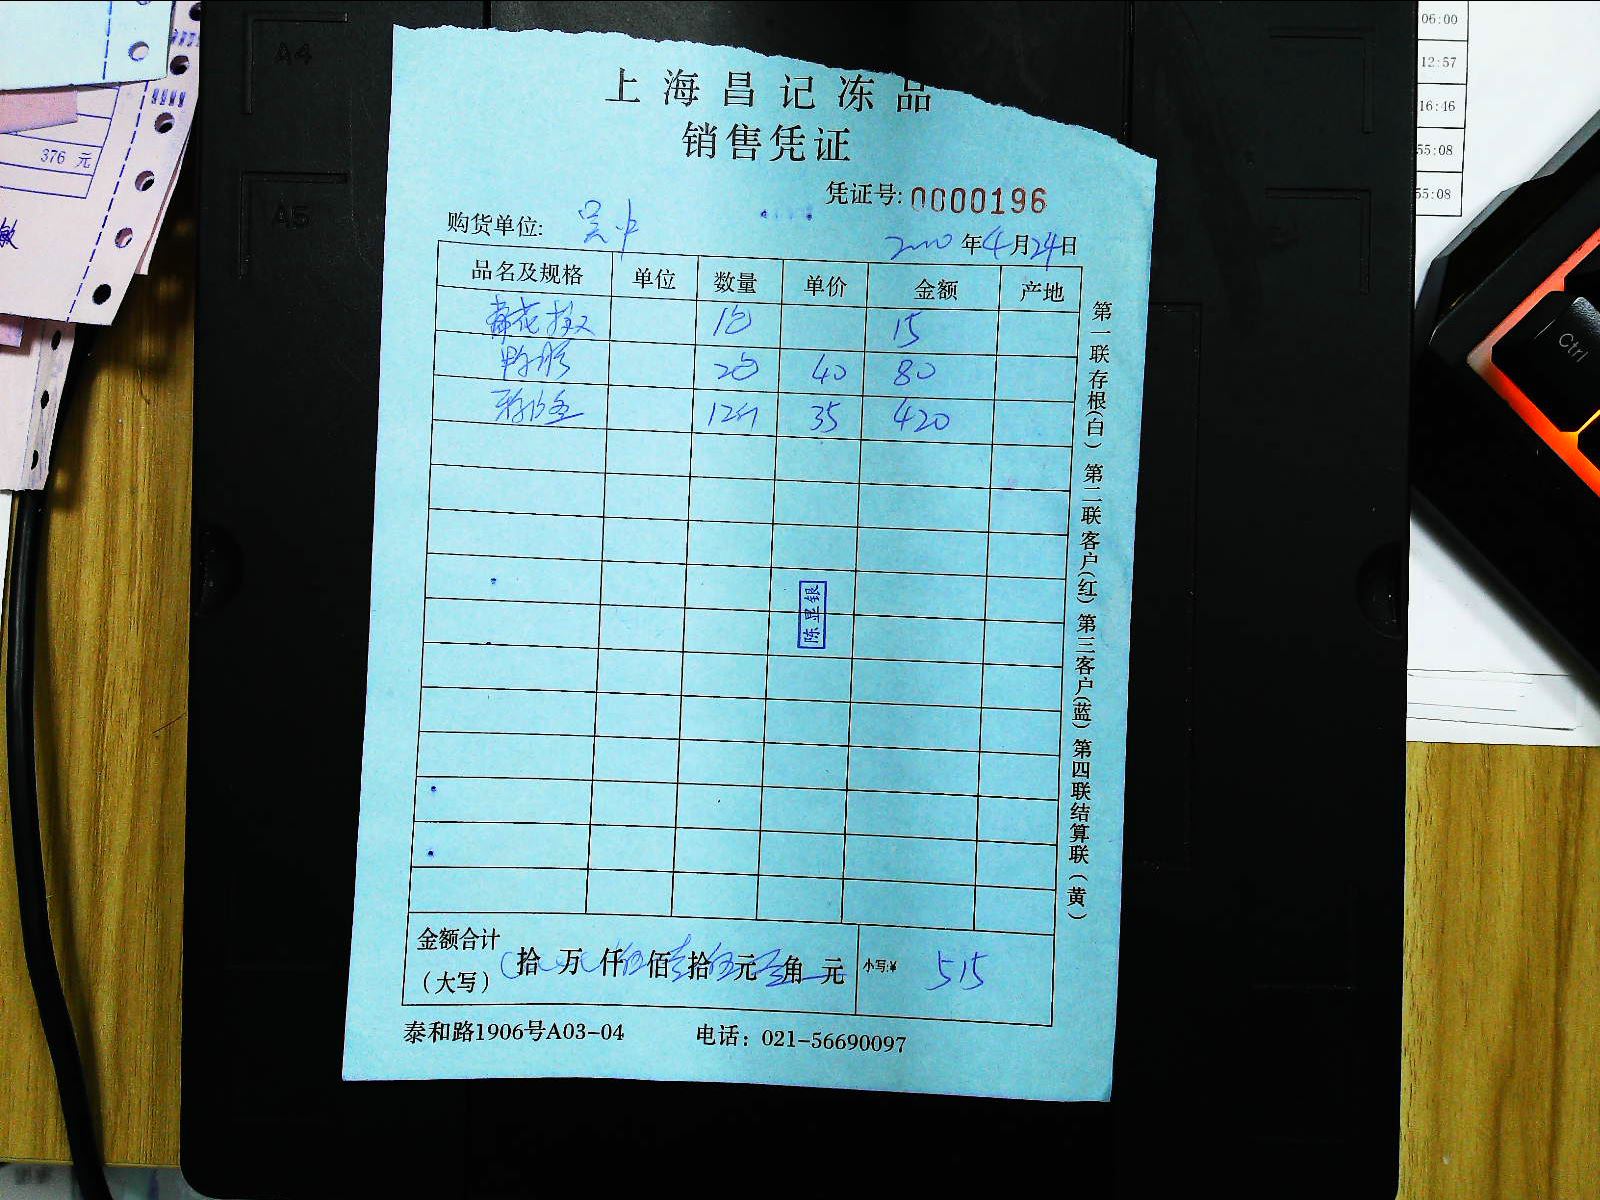 上海昌记冻品
销售凭证
凭证号: 0000196
购货单位: 吴中
年4月24日
品名及规格 单位 数量 单价 金额 产地
1包 15
2包 40 80
12 35 420
陈显银
金额合计
(大写)
拾万仟伍佰壹拾伍元角元
小写:¥ 515
泰和路1906号A03-04 电话: 021-56690097
第一联存根(白) 第二联客户(红) 第三客户(蓝) 第四联结算联(黄)
A4
A5
376 元
敏
06:00
12:57
16:46
55:08
55:08
Ctrl